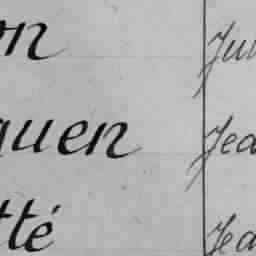 on Jul
quen Jea
tté Jea